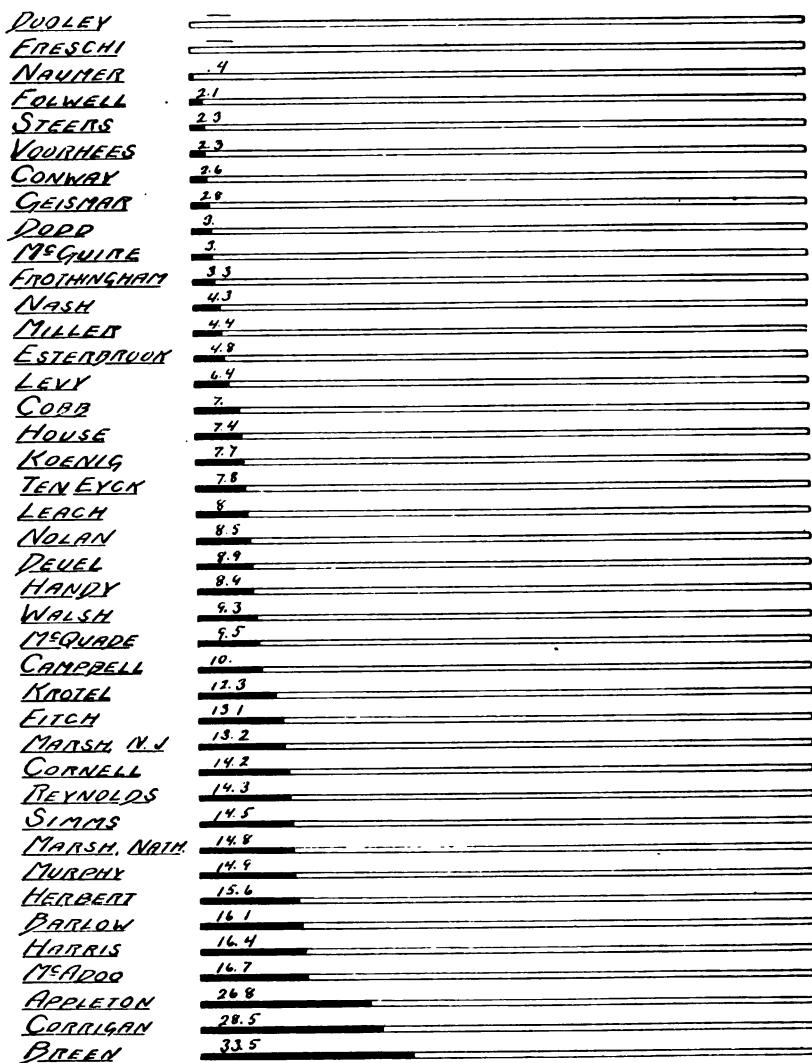 DUOLEY —
FRESCHI —
NAUMER .4
FOLWELL 2.1
STEERS 2 3
VOORHEES 2.3
CONWAY 2.6
GEISMAR 2 8
DODD 3.
McGUIRE 3.
FROTHINGHAM 3 3
NASH 4.3
MILLER 4.4
ESTERBROOK 4.8
LEVY 6.4
COBB 7.
HOUSE 7.4
KOENIG 7.7
TEN EYCK 7.8
LEACH 8
NOLAN 8.5
DEUEL 8.9
HANDY 8.9
WALSH 9.3
McQUADE 9.5
CAMPBELL 10.
KROTEL 12.3
FITCH 13 1
MARSH, N. J 13.2
CORNELL 14.2
REYNOLDS 14.3
SIMMS 14.5
MARSH, NATH. 14.8
MURPHY 14.9
HERBERT 15.6
BARLOW 16 1
HARRIS 16.4
McADOO 16.7
APPLETON 26 8
CORRIGAN 28.5
BREEN 33.5